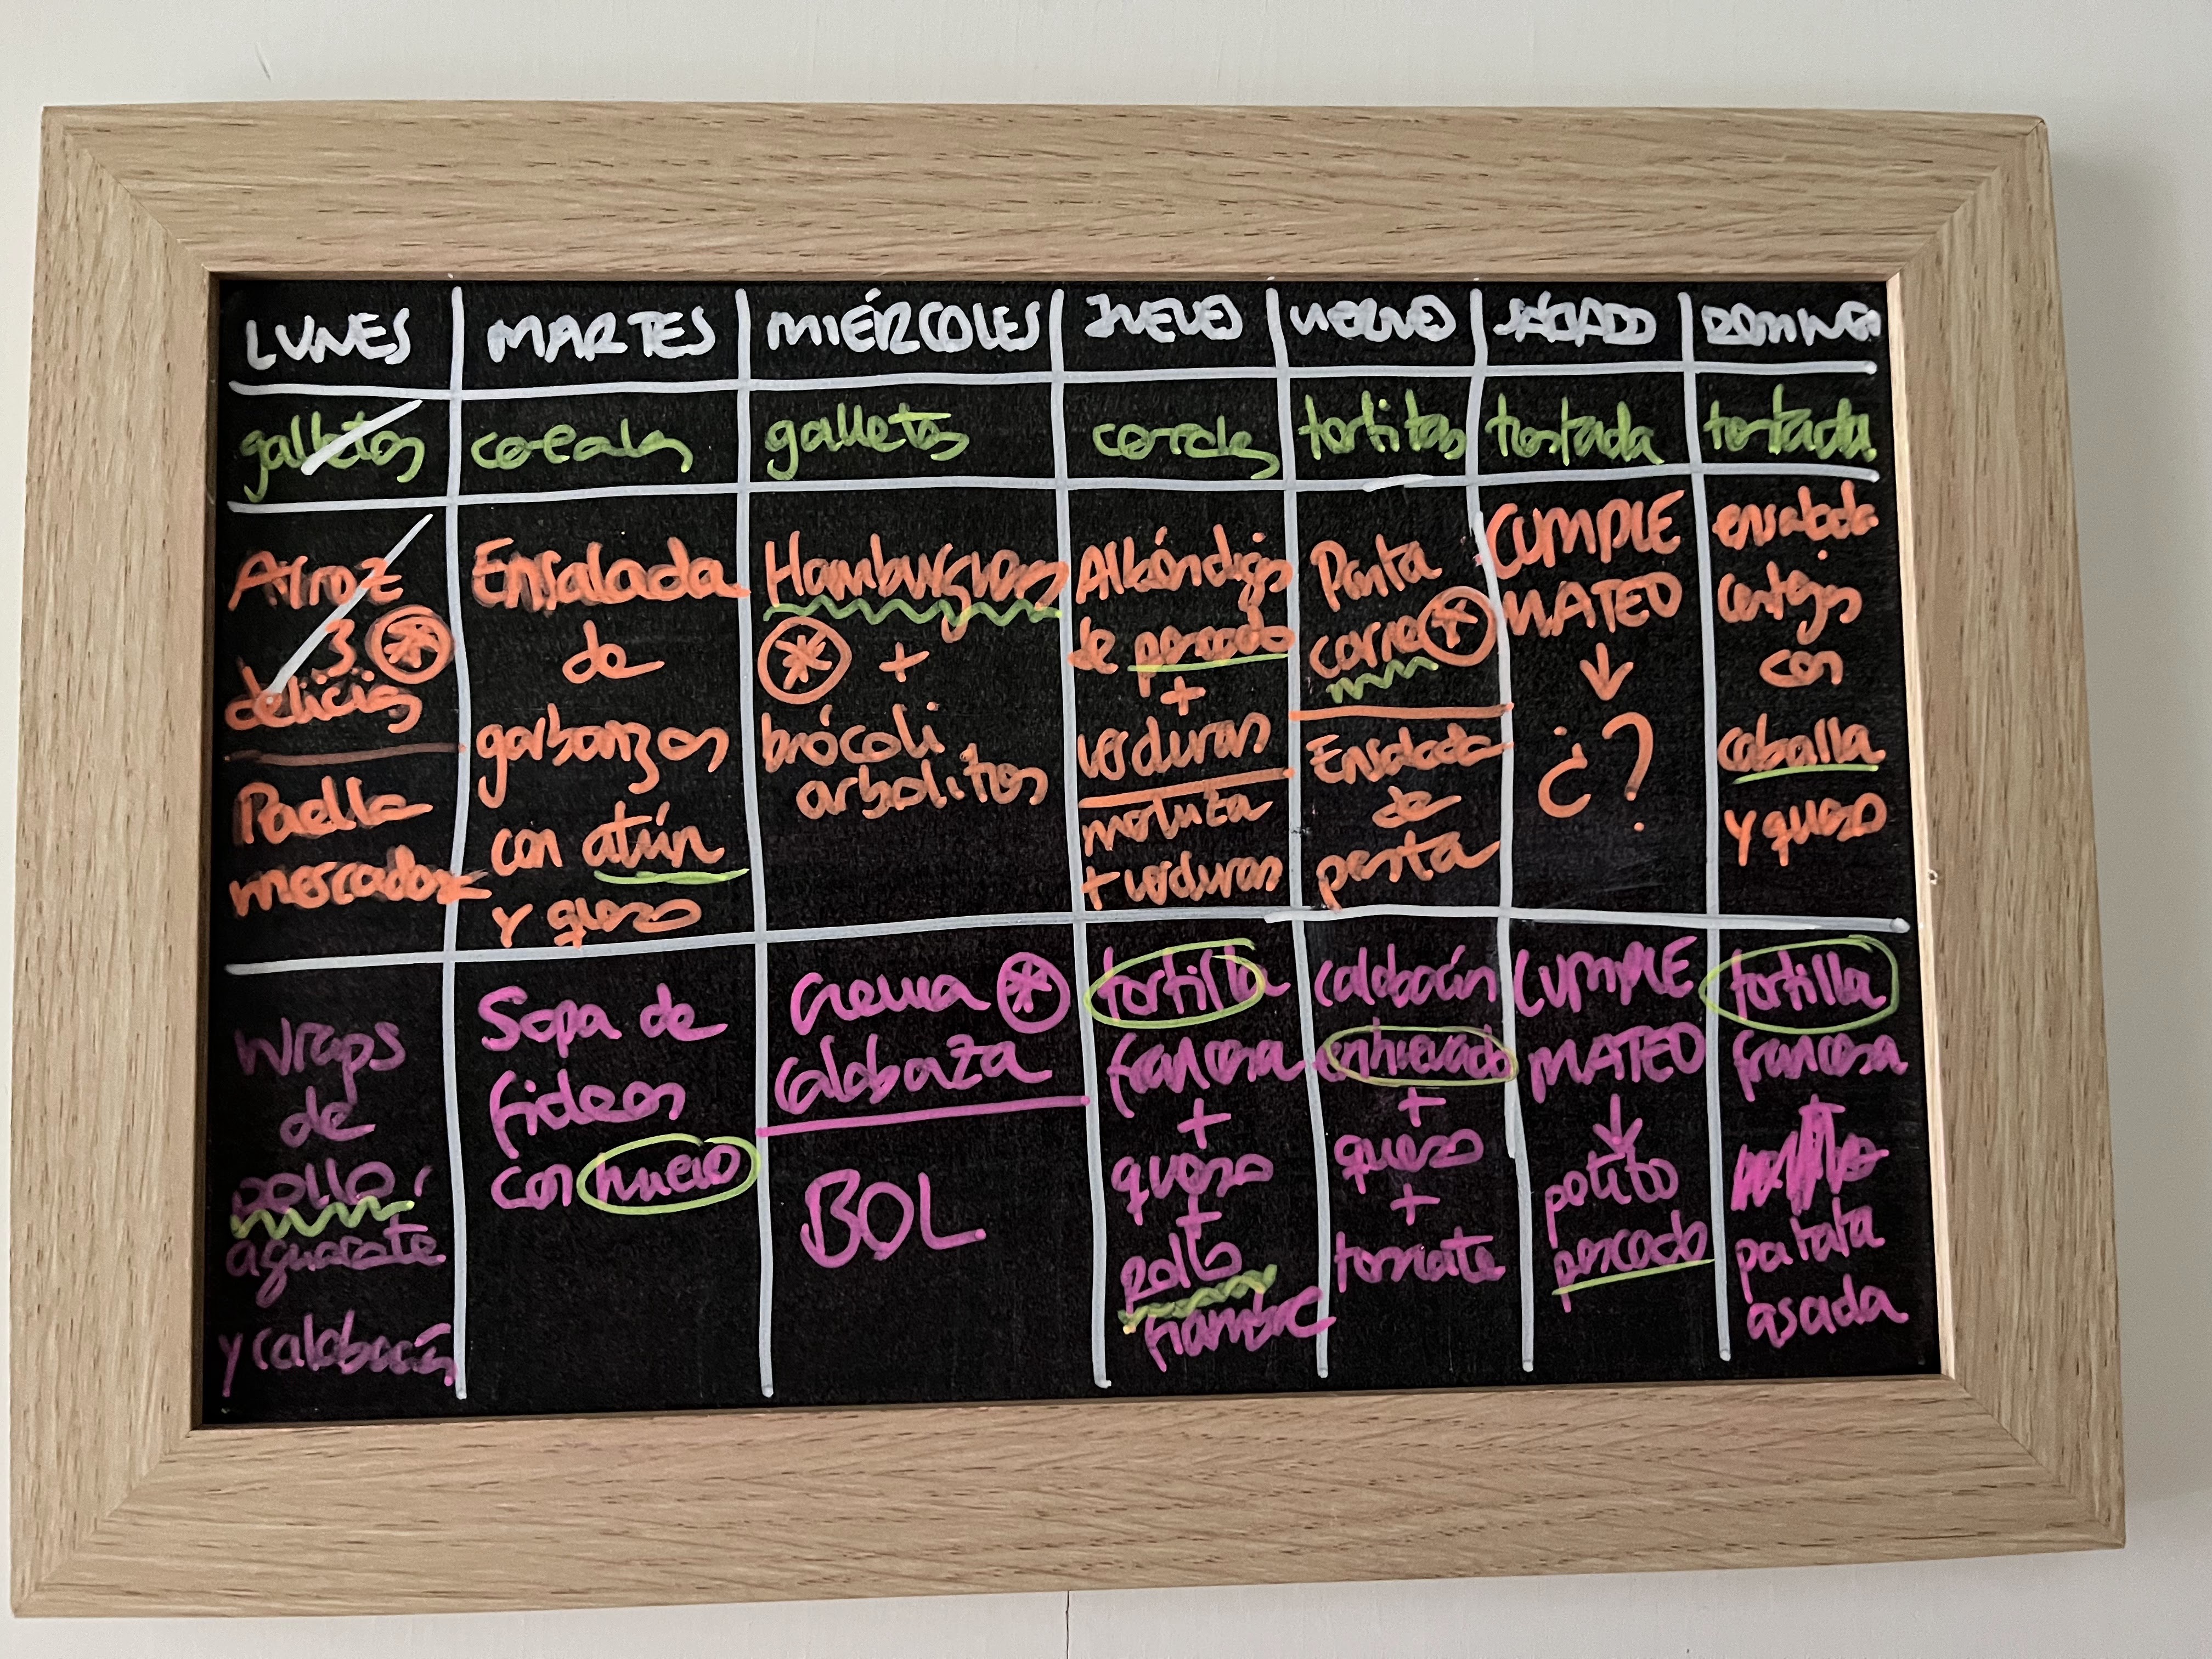 LUNES MARTES MIÉRCOLES JUEVES VIERNES SÁBADO DOMINGO
galletas cereales galletas cereales tortitas tostada tostada
Arroz
3
delicias
Paella
mercadona
Ensalada
de
garbanzos
con atún
y queso
Hamburguesas
* +
brócoli
arbolitos
Albóndigas
de pescado
+
verduras
merluza
+ verduras
Pasta
carne *
Ensalada
de
pasta
CUMPLE
MATEO
↓
¿?
ensalada
lentejas
con
caballa
y queso
Wraps
de
pollo,
aguacate
y calabacín
Sopa de
fideos
con huevo
Crema *
calabaza
BOL
tortilla
francesa
+
queso
+
pollo
fiambre
calabacín
enhuevado
+
queso
+
tomate
CUMPLE
MATEO
↓
potito
pescado
tortilla
francesa
+
patata
asada